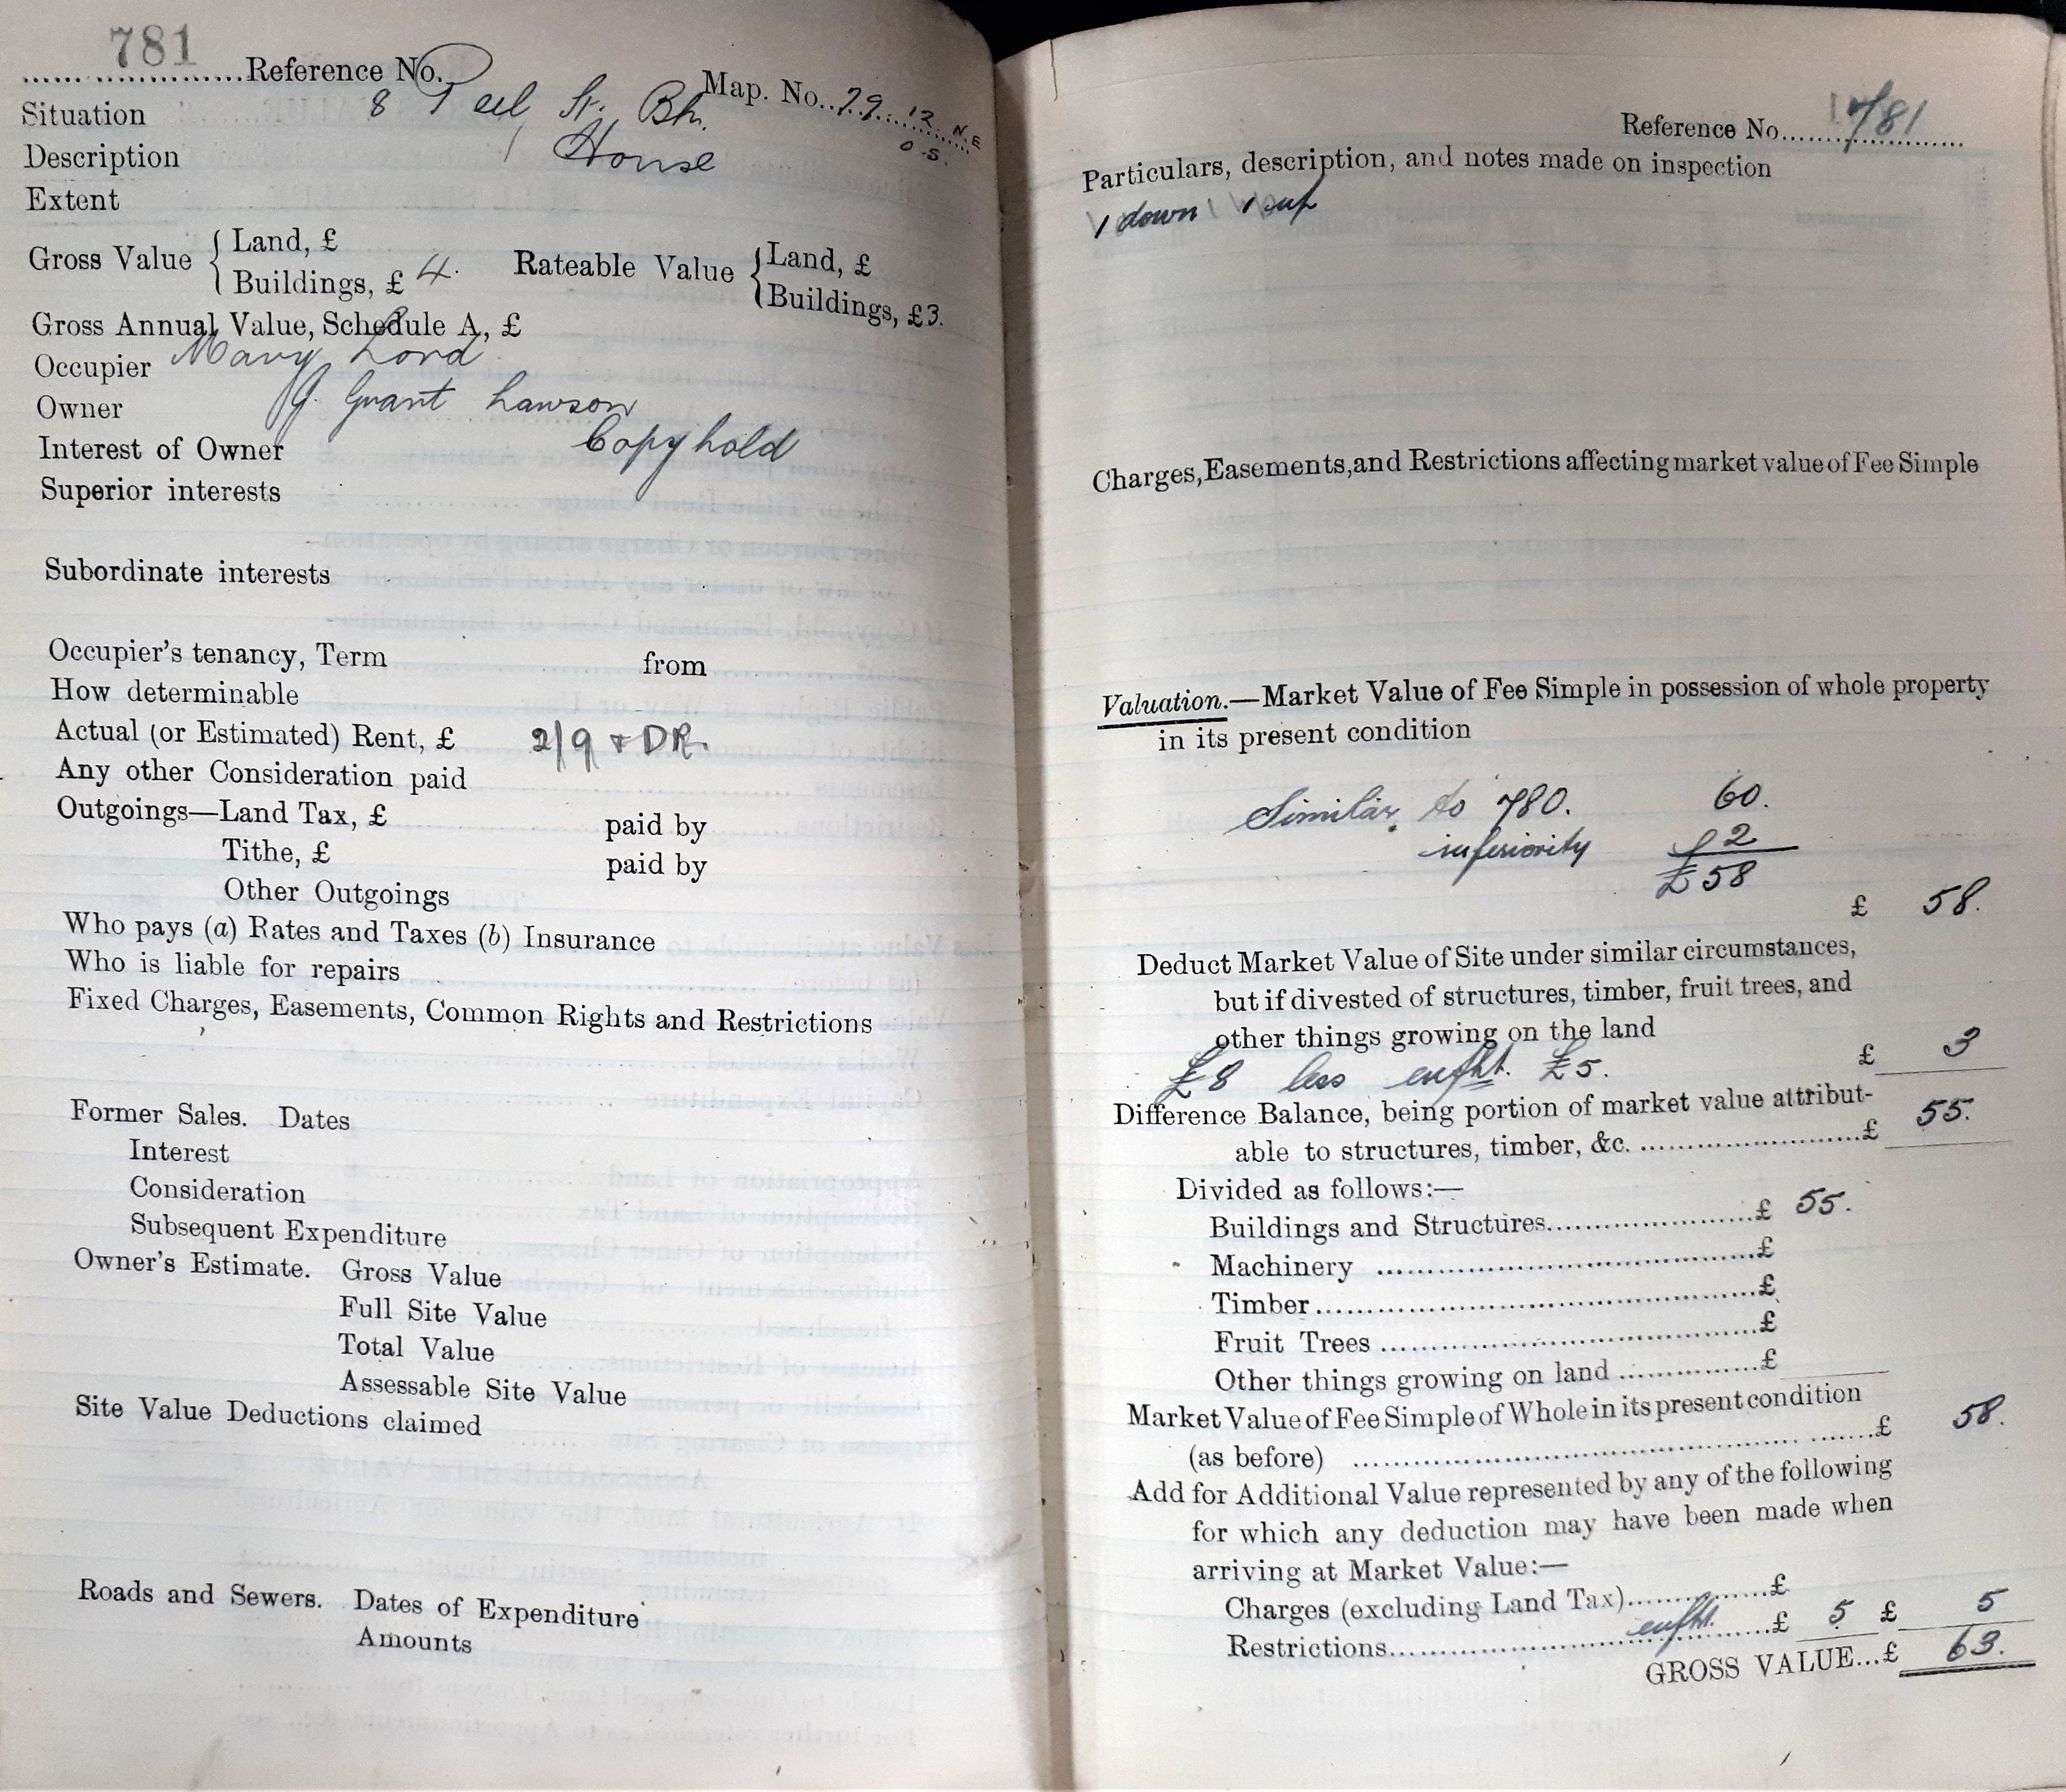 781
Reference No.
Map. No. 79 12 N.E
O.S.
Situation 8 Peel St. Bh.
Description House
Extent
Gross Value { Land, £
Buildings, £ 4.
Rateable Value { Land, £
Buildings, £3.
Gross Annual Value, Schedule A, £
Occupier Mary Lord
Owner J. Grant Lawson
Interest of Owner Copyhold
Superior interests
Subordinate interests
Occupier's tenancy, Term from
How determinable
Actual (or Estimated) Rent, £ 2/9 + DR.
Any other Consideration paid
Outgoings—Land Tax, £ paid by
Tithe, £ paid by
Other Outgoings
Who pays (a) Rates and Taxes (b) Insurance
Who is liable for repairs
Fixed Charges, Easements, Common Rights and Restrictions
Former Sales. Dates
Interest
Consideration
Subsequent Expenditure
Owner's Estimate. Gross Value
Full Site Value
Total Value
Assessable Site Value
Site Value Deductions claimed
Roads and Sewers. Dates of Expenditure
Amounts
Reference No. 781
Particulars, description, and notes made on inspection
1 down 1 up
Charges, Easements, and Restrictions affecting market value of Fee Simple
Valuation.—Market Value of Fee Simple in possession of whole property
in its present condition
Similar to 780. 60.
inferiority £2
£58
£ 58.
Deduct Market Value of Site under similar circumstances,
but if divested of structures, timber, fruit trees, and
other things growing on the land
£ 3
£8 less enfht. £5.
Difference Balance, being portion of market value attribut-
able to structures, timber, &c. £ 55.
Divided as follows:—
Buildings and Structures £ 55.
Machinery £
Timber £
Fruit Trees £
Other things growing on land £
Market Value of Fee Simple of Whole in its present condition
(as before) £ 58.
Add for Additional Value represented by any of the following
for which any deduction may have been made when
arriving at Market Value:—
Charges (excluding Land Tax) £
Restrictions enfht. £ 5 £ 5
GROSS VALUE...£ 63.